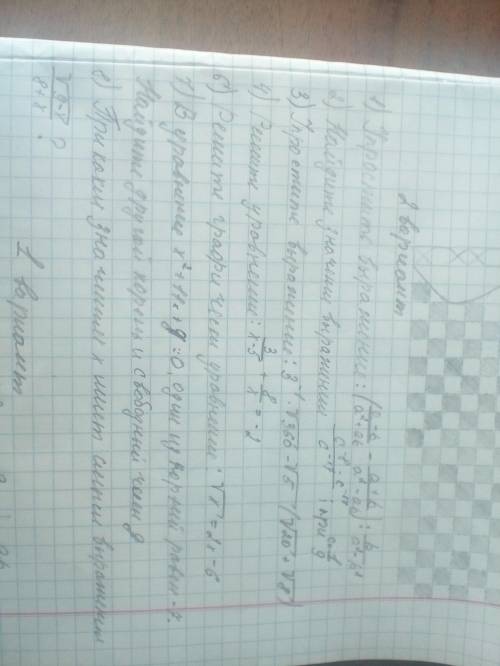 2 вариант
1) Упростить выражение: (a-b/a²+ab - a+b/a²-ab) : b/a²-b²
2) Найдите значение выражения c⁻⁷·c⁻¹⁷/c⁻¹⁷ при
3) Упростите выражение: 3⁻¹·√360 - √5 (√20 + √8)
4) Решите уравнение: 3/x-5 + 8/x = -2
6) Решите графически уравнение: √x = 2x-6
7) В уравнении x²+11x+q=0, один из корней равен -7.
Найдите другой корень и свободный член q
8) При каких значениях x имеет смысл выражение
√x-x/8+x ?
1 вариант